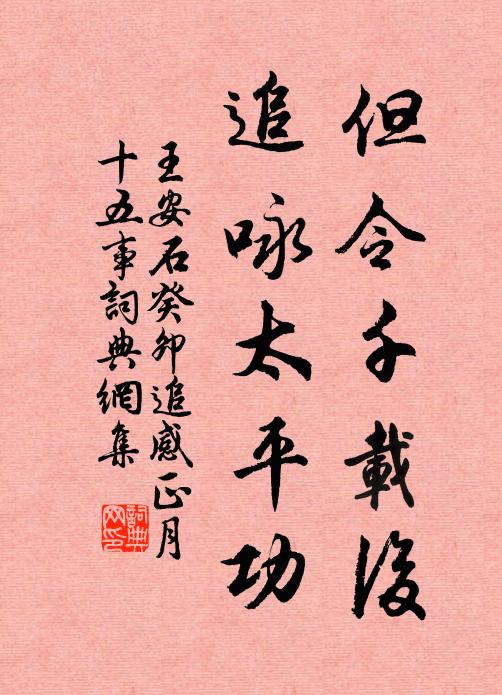 但令千載後
追咏太平功
王安石癸卯追感正月
十五事詞典網集
詞典
网印